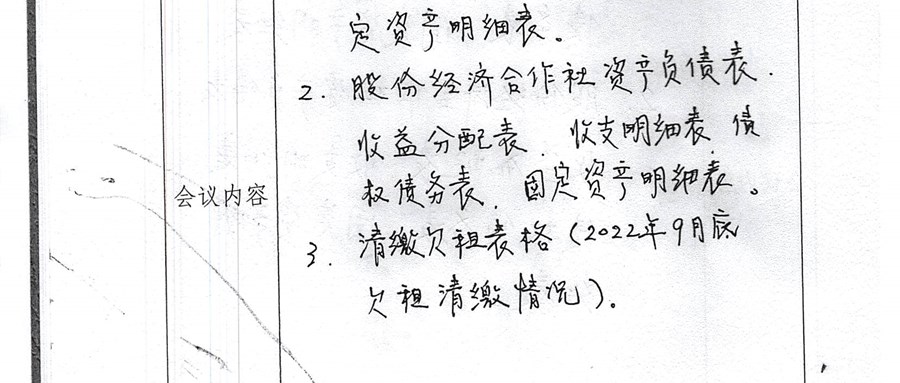 定资产明细表。
2. 股份经济合作社资产负债表.
收益分配表、收支明细表、债
权债务表、固定资产明细表。
会议内容
3. 清缴欠租表格(2022年9月底
欠租清缴情况)。